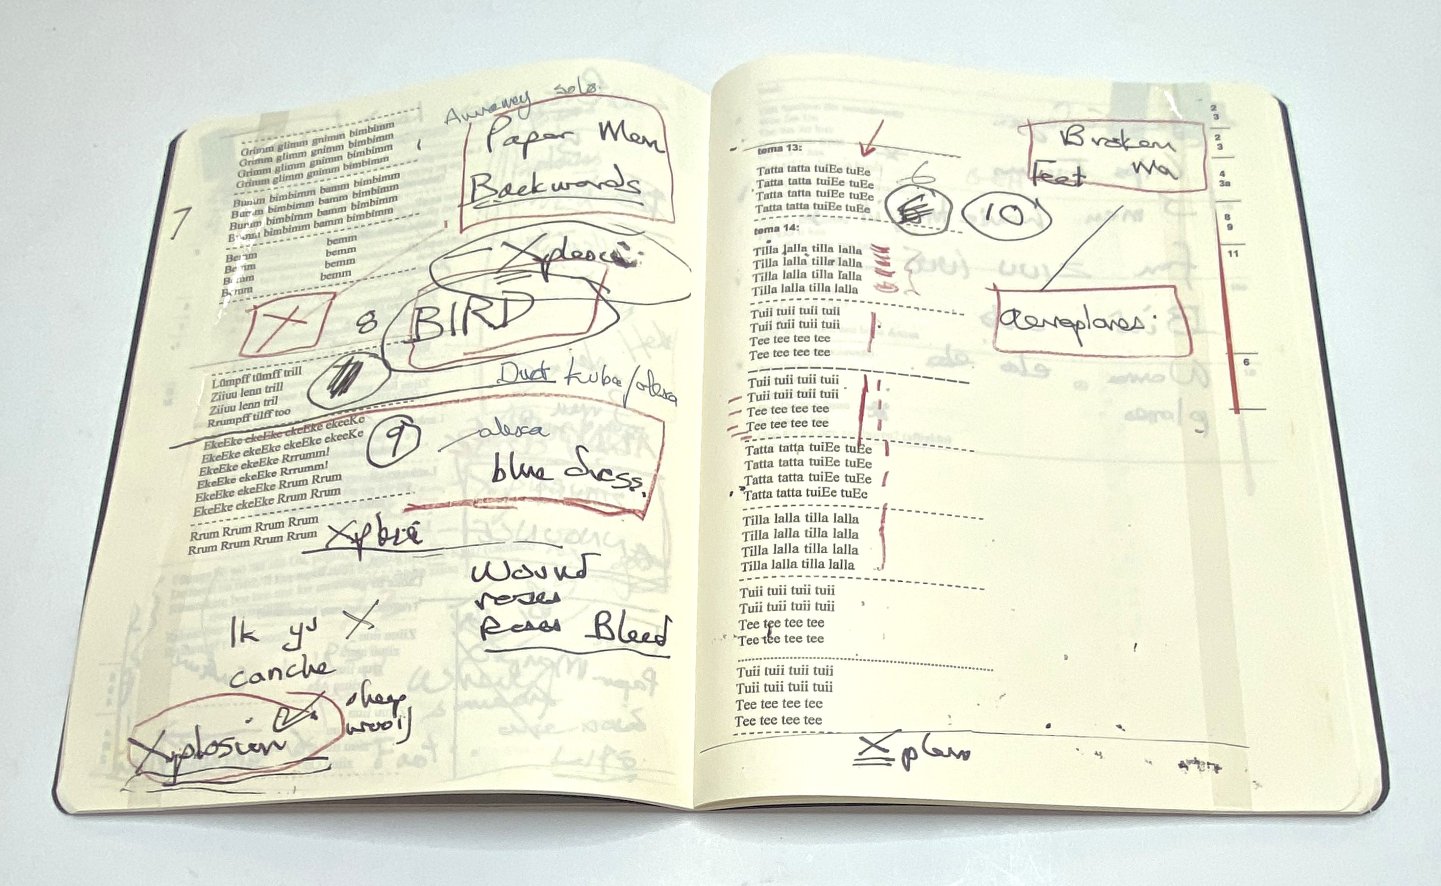 solo
Grimm glimm gnimm bimbimm
Grimm glimm gnimm bimbimm
Grimm glimm gnimm bimbimm
Grimm glimm gnimm bimbimm
Paper Men
Backwards
Bumm bimbimm bamm bimbimm
Bumm bimbimm bamm bimbimm
Bumm bimbimm bamm bimbimm
Bumm bimbimm bamm bimbimm
7
bemm
Bemm bemm
Bemm bemm
Bemm bemm
Bemm
X
8
BIRD
Lümpff tümff trill
Ziiuu lenn trill
Ziiuu lenn tril
Rrumpff tilff too
Duet kuba/alexa
EkeEke ekeEke ekeEke ekeeKe
EkeEke ekeEke ekeEke ekeeKe
EkeEke ekeEke Rrrumm!
EkeEke ekeEke Rrrumm!
EkeEke ekeEke Rrum Rrum
EkeEke ekeEke Rrum Rrum
9
alexa
blue dress.
Rrum Rrum Rrum Rrum
Rrum Rrum Rrum Rrum
Wound
roses
Roses Bleed
X
canche
sheep
Xplosion
tema 13:
Tatta tatta tuiEe tuEe
Tatta tatta tuiEe tuEe
Tatta tatta tuiEe tuEe
Tatta tatta tuiEe tuEe
6
10
Broken
Feet Wa
tema 14:
Tilla lalla tilla lalla
Tilla lalla tilla lalla
Tilla lalla tilla lalla
Tilla lalla tilla lalla
Tuii tuii tuii tuii
Tuii tuii tuii tuii
Tee tee tee tee
Tee tee tee tee
aeroplanes.
Tuii tuii tuii tuii
Tuii tuii tuii tuii
Tee tee tee tee
Tee tee tee tee
Tatta tatta tuiEe tuEe
Tatta tatta tuiEe tuEe
Tatta tatta tuiEe tuEe
Tatta tatta tuiEe tuEe
Tilla lalla tilla lalla
Tilla lalla tilla lalla
Tilla lalla tilla lalla
Tilla lalla tilla lalla
Tuii tuii tuii tuii
Tuii tuii tuii tuii
Tee tee tee tee
Tee tee tee tee
Tuii tuii tuii tuii
Tuii tuii tuii tuii
Tee tee tee tee
Tee tee tee tee
2
3
2
3
4
3a
8
9
11
6